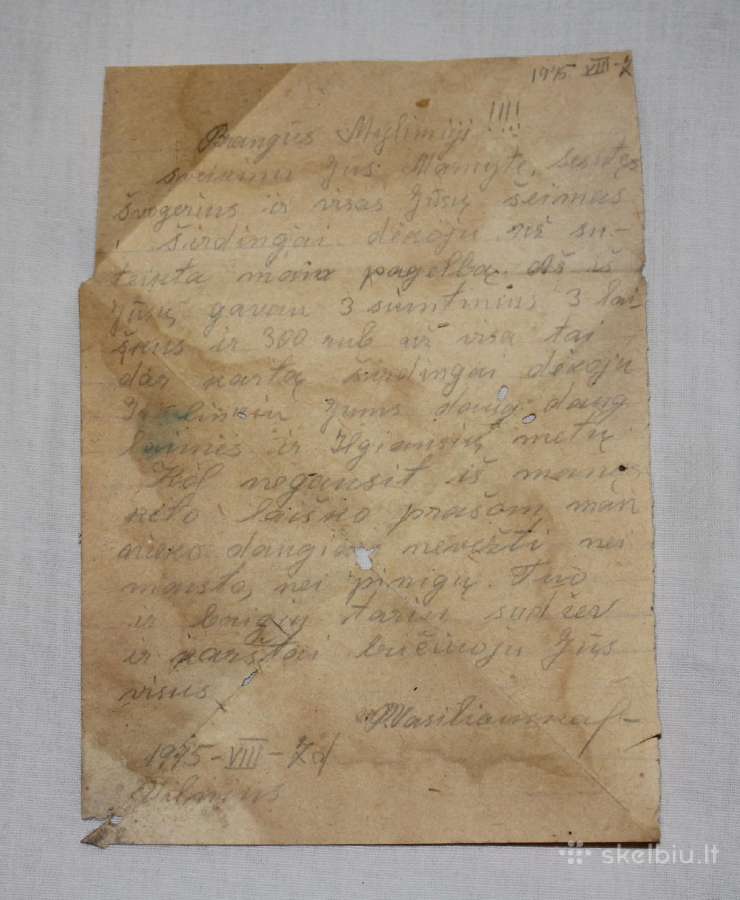 1945 VIII-7
Brangūs Mylimieji !!!!
sveikinu Jus Mamytę, seseles
švogerius ir visas Jūsų šeimas
ir širdingai dėkoju už su-
teiktą mano pagelbą. Aš iš
Jūsų gavau 3 siuntinius 3 lai-
škus ir 300 rub už visa tai
dar kartą širdingai dėkoju
Ir linkiu Jums daug daug
laimės ir Ilgiausių metų
Kol negausit iš manę
kito laiško prašom man
nieko daugiau nevežti nei
maisto, nei pinigų. Tuo
ir baigių tariu sudžev
ir karštai bučiuoju Jūs
visus
1945-VIII-7d
Vilnius
skelbiu.lt